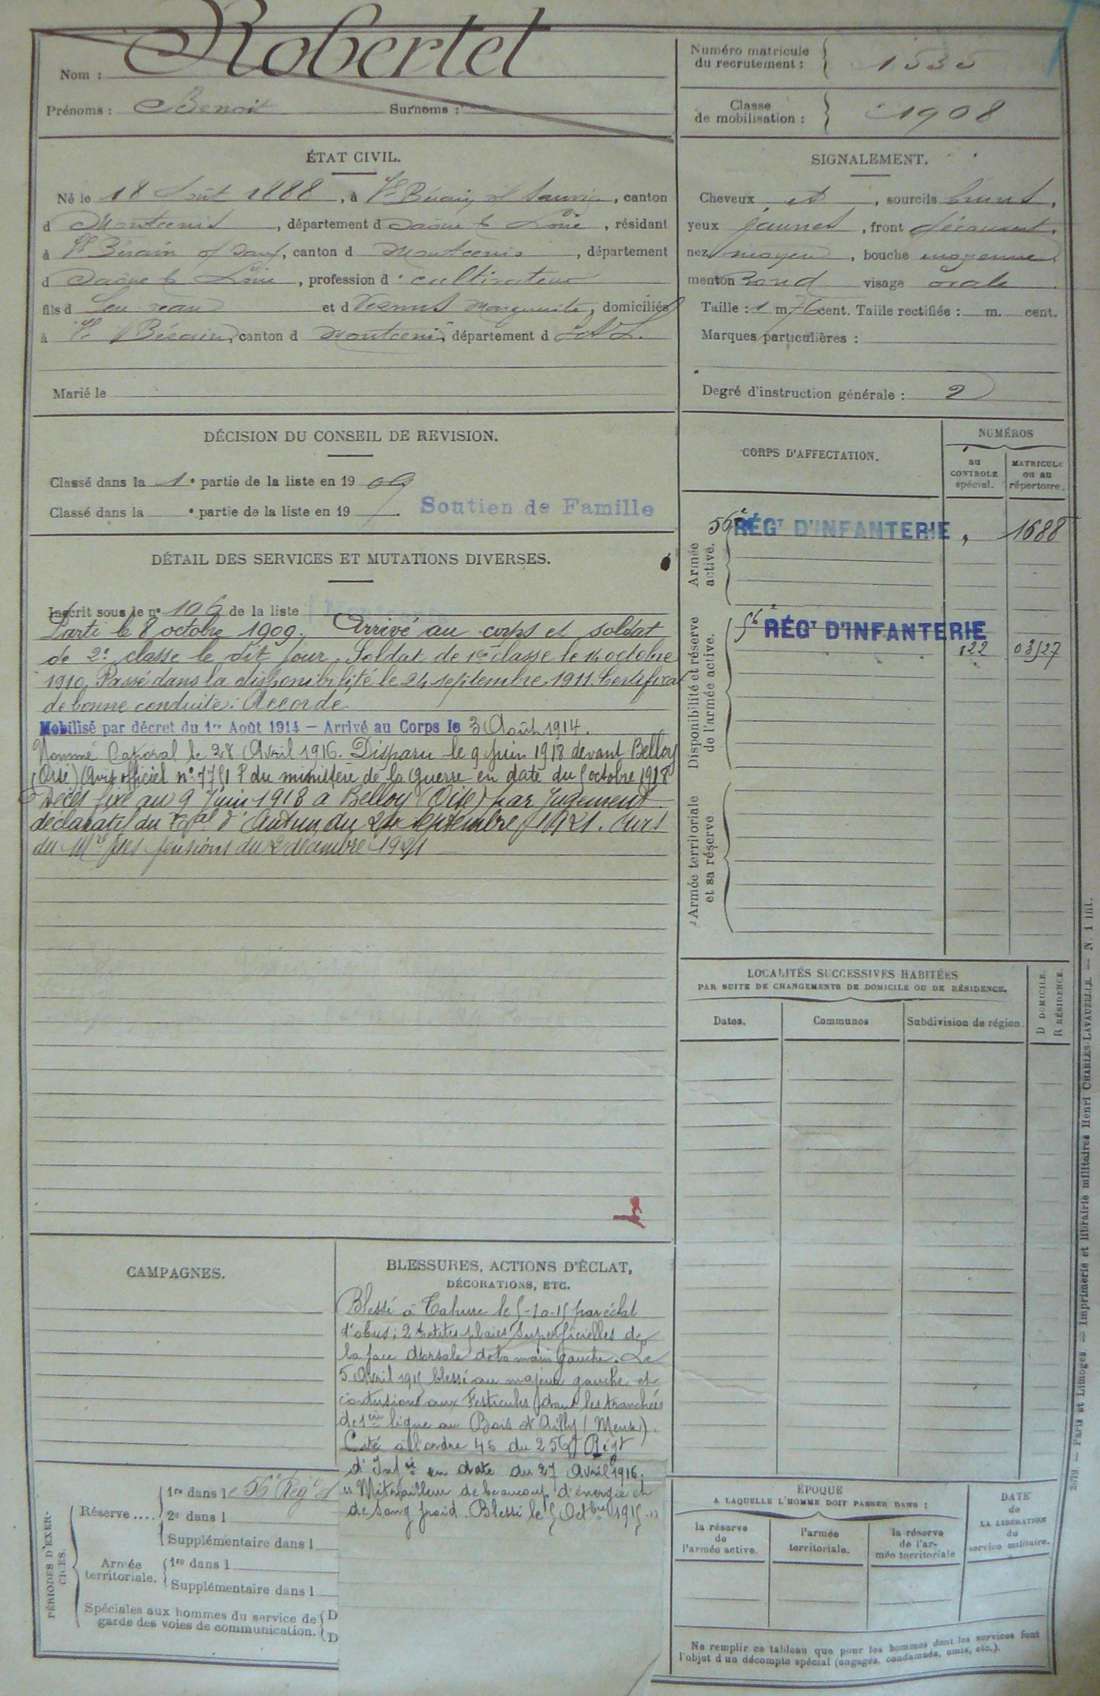 Nom : Robertet
Prénoms : Benoit Surnoms :
Numéro matricule
du recrutement : 1535
Classe
de mobilisation : 1908
ÉTAT CIVIL.
Né le 18 Août 1888, à St Bérain s/ Sanvignes, canton
d Montcenis, département d Saône & Loire, résidant
à St Bérain s/ Sanv, canton d Montcenis, département
d Saône & Loire, profession d cultivateur
fils d feu Jean et d Marguerite, domiciliés
à St Bérain, canton d Montcenis, département d S. & L.
Marié le
SIGNALEMENT.
Cheveux et, sourcils bruns,
yeux jaunes, front découvert,
nez moyen, bouche moyenne,
menton rond visage ovale
Taille : 1 m 76 cent. Taille rectifiée : m. cent.
Marques particulières :
Degré d'instruction générale : 2
DÉCISION DU CONSEIL DE REVISION.
Classé dans la 1e partie de la liste en 1909
Classé dans la e partie de la liste en 19 .
Soutien de Famille
DÉTAIL DES SERVICES ET MUTATIONS DIVERSES.
Inscrit sous le n° 106 de la liste
Parti le 8 octobre 1909. Arrivé au corps et soldat
de 2e classe le dit jour. Soldat de 1re classe le 14 octobre
1910. Passé dans la disponibilité le 24 septembre 1911. Certificat
de bonne conduite : Accordé.
Mobilisé par décret du 1er Août 1914 — Arrivé au Corps le 3 Août 1914.
Nommé Caporal le 28 Avril 1916. Disparu le 9 juin 1918 devant Belloy
(Oise) (Avis officiel n° P du ministère de la Guerre en date du 5 octobre 1918
Décès fixé au 9 Juin 1918 à Belloy (Oise) par Jugement
déclaratif du Tal d'Autun du septembre 1921. Avis
du Mre des pensions du 2 décembre 1921
CORPS D'AFFECTATION.
NUMÉROS
au
CONTROLE
spécial.
MATRICULE
ou au
répertoire.
Armée
active.
56e RÉGT D'INFANTERIE , 1688
Disponibilité et réserve
de l'armée active.
56e RÉGT D'INFANTERIE
122 03527
Armée territoriale
et sa réserve
LOCALITÉS SUCCESSIVES HABITÉES
PAR SUITE DE CHANGEMENTS DE DOMICILE OU DE RÉSIDENCE.
Dates.
Communes
Subdivision de région.
D DOMICILE.
R RÉSIDENCE.
CAMPAGNES.
BLESSURES, ACTIONS D'ÉCLAT,
DÉCORATIONS, ETC.
Blessé à Tahure le 5-10-15 par éclat
d'obus ; 2 petites plaies superficielles de
la face dorsale de la main gauche. Le
5 Avril 1915 blessé au majeur gauche et
contusions aux testicules dans les tranchées
de 1ère ligne au Bois d'Ailly (Meuse).
Cité à l'ordre 45 du 256e Régt
d'Infrie en date du 27 Avril 1916.
"Mitrailleur de beaucoup d'énergie et
de sang froid. Blessé le 5 Octbre 1915"
PÉRIODES D'EXERCICES.
Réserve ....
1re dans le 56e Régt d'I
2e dans l
Supplémentaire dans l
Armée
territoriale.
1re dans l
Supplémentaire dans l
Spéciales aux hommes du service de
garde des voies de communication.
D
D
ÉPOQUE
A LAQUELLE L'HOMME DOIT PASSER DANS :
la réserve
de
l'armée active.
l'armée
territoriale.
la réserve
de l'ar-
mée territoriale
DATE
de
LA LIBÉRATION
du
service militaire.
Ne remplir ce tableau que pour les hommes dont les services font
l'objet d'un décompte spécial (engagés, condamnés, omis, etc.).
Paris et Limoges. — Imprimerie et librairie militaires Henri CHARLES-LAVAUZELLE. — N. 1 int.